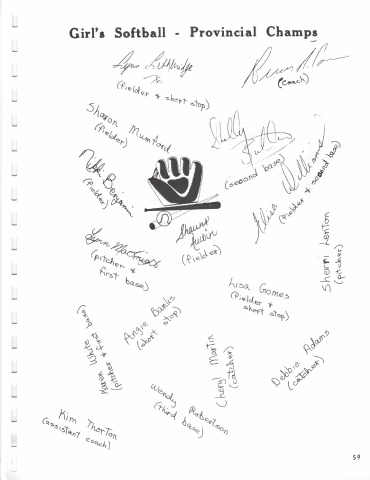 Girl's Softball - Provincial Champs
Lynn Lethbridge
(fielder & short stop)
(coach)
Sharon Mumford
(fielder)
Shelly
(second base)
Nikki Benjamin
(fielder)
Elise Williams
(fielder & second base)
Shauna
(fielder)
Lynn
(pitcher &
first base)
Sherri Lenton
(pitcher)
Lisa Gomes
(fielder &
short stop)
Angie Banks
(short stop)
Karen White
(pitcher & first base)
Cheryl Martin
(catcher)
Debbie Adams
(catcher)
Wendy Robertson
(third base)
Kim Thorton
(assistant coach)
59